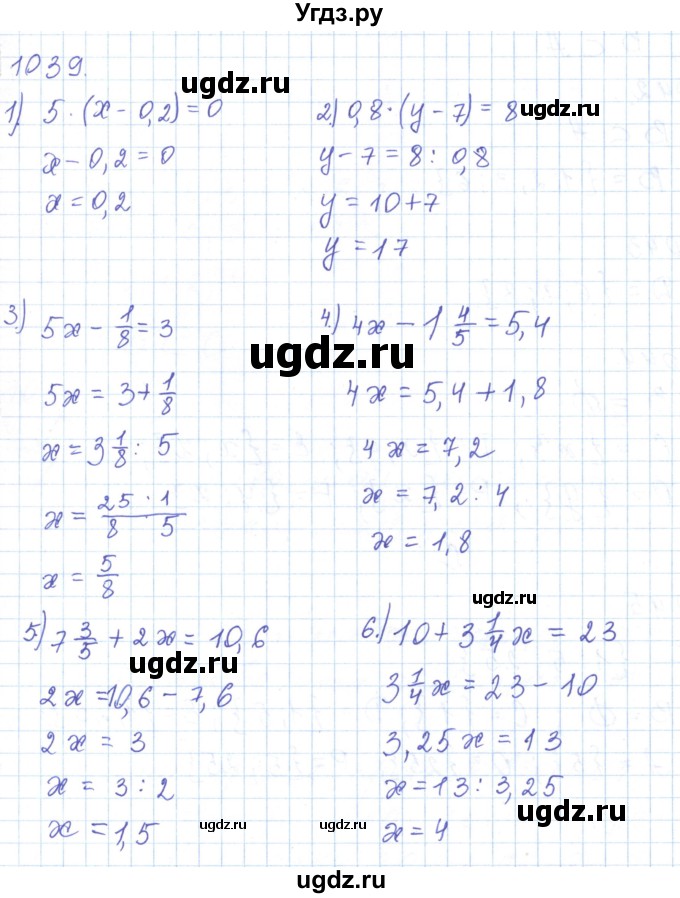 Угдз.ру
1039.
ugdz.ru
1) 5 · (x - 0,2) = 0
x - 0,2 = 0
x = 0,2
2) 0,8 · (y - 7) = 8
ugdz.ru
y - 7 = 8 : 0,8
y = 10 + 7
y = 17
3.) 5x - 1/8 = 3
ugdz.ru
5x = 3 + 1/8
x = 3 1/8 : 5
x = 25 · 1 / 8 · 5
x = 5/8
4.) 4x - 1 4/5 = 5,4
4x = 5,4 + 1,8
4x = 7,2
x = 7,2 : 4
x = 1,8
ugdz.ru
5.) 7 3/5 + 2x = 10,6
ugdz.ru
2x = 10,6 - 7,6
2x = 3
x = 3 : 2
x = 1,5
ugdz.ru
6.) 10 + 3 1/4 x = 23
3 1/4 x = 23 - 10
3,25x = 13
x = 13 : 3,25
ugdz.ru
x = 4
ugdz.ru
ugdz.ru